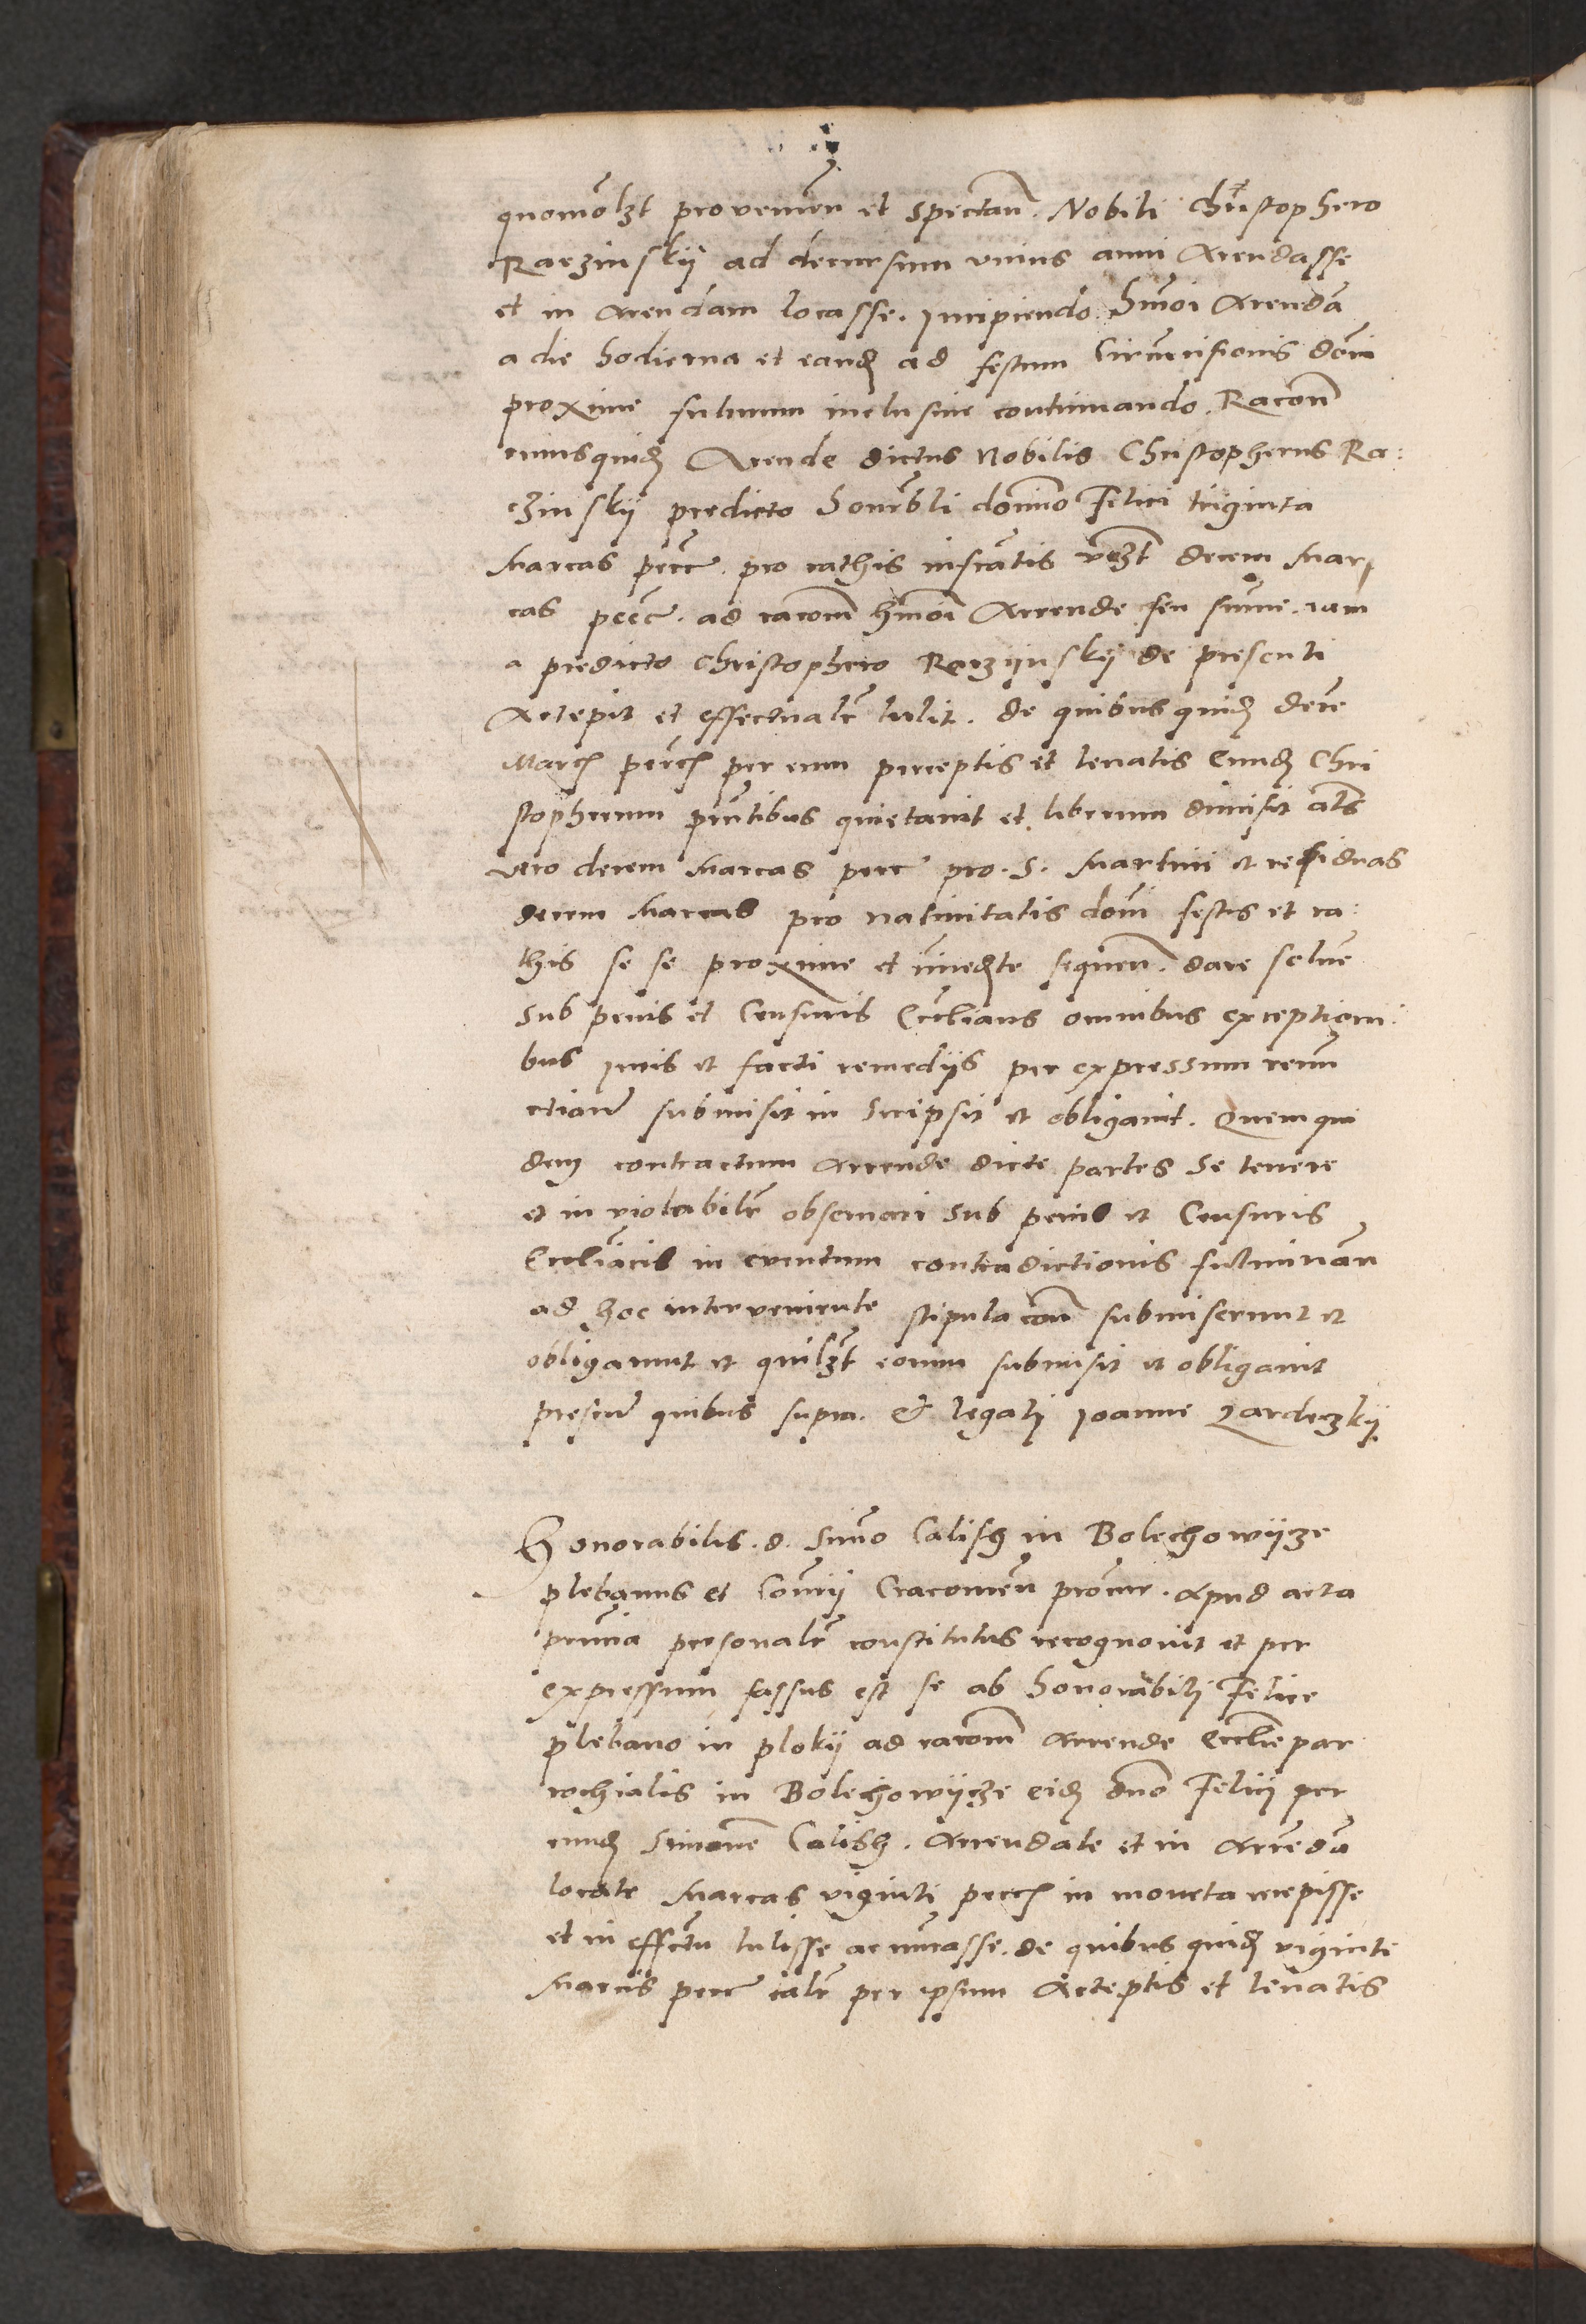 quomōlzt provenien̄ et spectan̄. Nobili Christophero
Raczinskij ad decursum unius anni Arendasse
et in arendam locasse. Incipiendo hm̄oi Arendā
a die hodierna et eand ad festum Circumcisionis dōni
proxime futurum inclusive continuando. Racōne
cuiusquid Arende dictus Nobilis Christopherus Ra:
czinskij predicto honorābli domino Felici triginta
Marcas pecc. pro rathis infrātis vezt decem Mar
cas pecc. ad racōm hm̄oi Arrende seu sum̄e. iam
a predicto Christophero Raczijnskij de presenti
Accepit et effectualr tulit. de quibus quid dece
Marc pecc per eum perceptis et levatis Eund Chri
stopherum pn̄tibus quietavit et liberum dimisit al̄s
vero decem Marcas pecc pro. S. Martini et residuas
decem Marcas pro nativitatis dom̄i festis et ra:
this se se proxime et im̄ediate sequen̄. dare solvere
sub penis et Censuris Eccliacis omnibus exceptioni:
bus iuris et facti remedijs per expressum renun
ctian̄ submisit in scripsit et obligavit. Quemqui
dem contractum arrende dicte partes se tenere
et inviolabilr observari sub penis et Censuris
Eccliācis in eventum contradictionis fulminan̄
ad hoc interveniente stipulacōne submiserunt et
obligarunt et quilzt eorum submisit et obligavit
presen̄ quibus supra. & legali Joanne Zardeczkij

Honorabilis. d. Simō Calish in Bolechowijze
plebanus et Con̄rij Cracovien̄ procur. Apud acta
pn̄cia personalr constitutus recognovit et per
expressum fassus est se ab honorabili Felice
plebano in plokij ad racōm arrende Ecclie par
rochialis in Bolechowijcze eid dno Felici per
eund Simonē Calish. Arrendate et in Arrēdā
locate Marcas viginti pecc in moneta recepisse
et in effectu tulisse ac numerasse. de quibus quid viginti
Marcis pecc talr per ipsum Acceptis et levatis